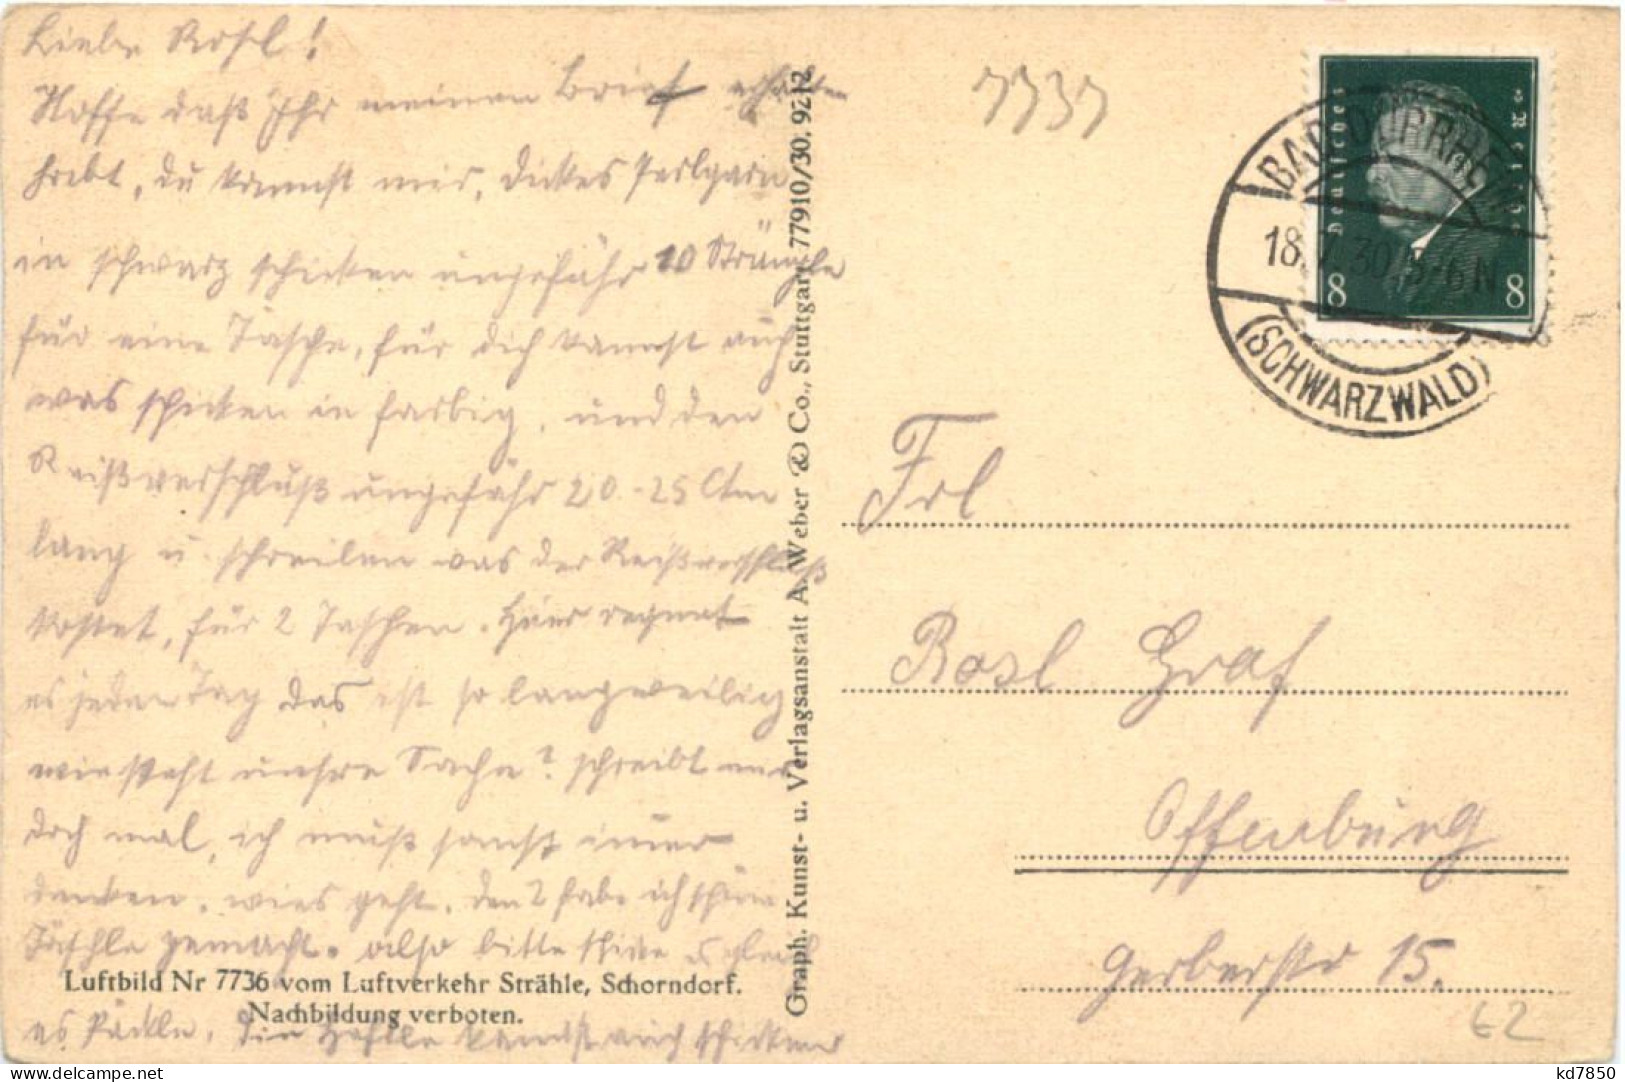 Liebe Rosl!
Hoffe daß Ihr meinen Brief erhalten
habt, du kannst mir, dickes Perlgarn
in schwarz schicken ungefähr 10 Stränge
für eine Tasche, für dich kannst auch
was schicken in farbig, und den
Reißverschluß ungefähr 20-25 Ctm
lang u. schreiben was der Reißverschluß
kostet, für 2 Taschen. Hier regnet
es jeden Tag das ist so langweilig
wie steht unsere Sache? schreibt mir
doch mal, ich muß sonst immer
denken, wies geht. den 2 habe ich schöne
Täschle gemacht. also bitte schicke gleich
es Päckle. kannst auch schicken
Luftbild Nr 7736 vom Luftverkehr Strähle, Schorndorf.
Nachbildung verboten.
Graph. Kunst- u. Verlagsanstalt A. Weber & Co., Stuttgart 77910/30. 9212
7737
Deutsches Reich
8 8
BAD DÜRRHEIM
18.7.30.5-6 N
(SCHWARZWALD)
Frl
Rosl Graf
Offenburg
Gerberstr 15.
62
www.delcampe.net
kd7850